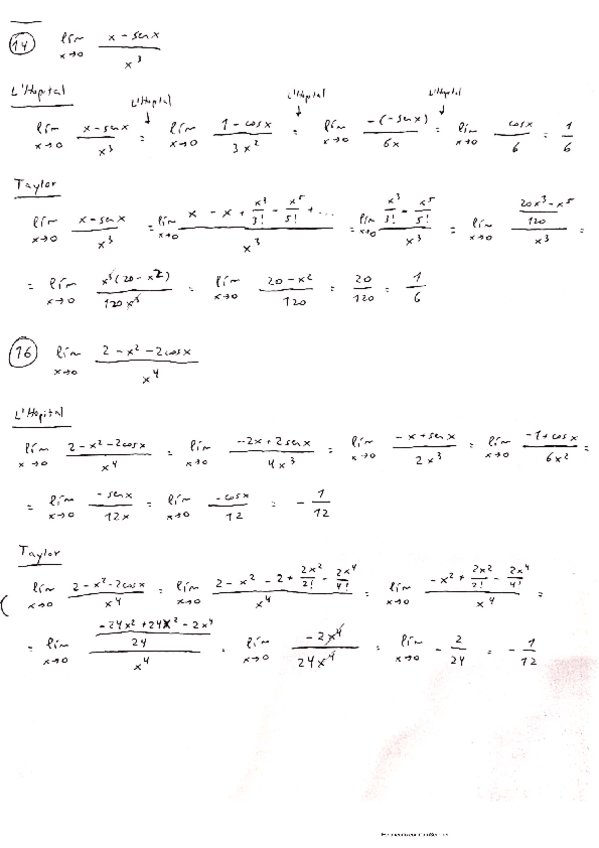 14 lím x→0 (x - sen x)/x³
L'Hopital
L'Hopital L'Hopital L'Hopital
lím x→0 (x - sen x)/x³ = lím x→0 (1 - cos x)/3x² = lím x→0 -(-sen x)/6x = lím x→0 cos x/6 = 1/6
Taylor
lím x→0 (x - sen x)/x³ = lím x→0 (x - x + x³/3! - x⁵/5! + ...)/x³ = lím x→0 (x³/3! - x⁵/5!)/x³ = lím x→0 ((20x³ - x⁵)/120)/x³ =
= lím x→0 x³(20 - x²)/120x³ = lím x→0 (20 - x²)/120 = 20/120 = 1/6
16 lím x→0 (2 - x² - 2cos x)/x⁴
L'Hopital
lím x→0 (2 - x² - 2cos x)/x⁴ = lím x→0 (-2x + 2sen x)/4x³ = lím x→0 (-x + sen x)/2x³ = lím x→0 (-1 + cos x)/6x² =
= lím x→0 -sen x/12x = lím x→0 -cos x/12 = -1/12
Taylor
lím x→0 (2 - x² - 2cos x)/x⁴ = lím x→0 (2 - x² - 2 + 2x²/2! - 2x⁴/4!)/x⁴ = lím x→0 (-x² + 2x²/2! - 2x⁴/4!)/x⁴ =
= lím x→0 ((-24x² + 24x² - 2x⁴)/24)/x⁴ = lím x→0 -2x⁴/24x⁴ = lím x→0 -2/24 = -1/12